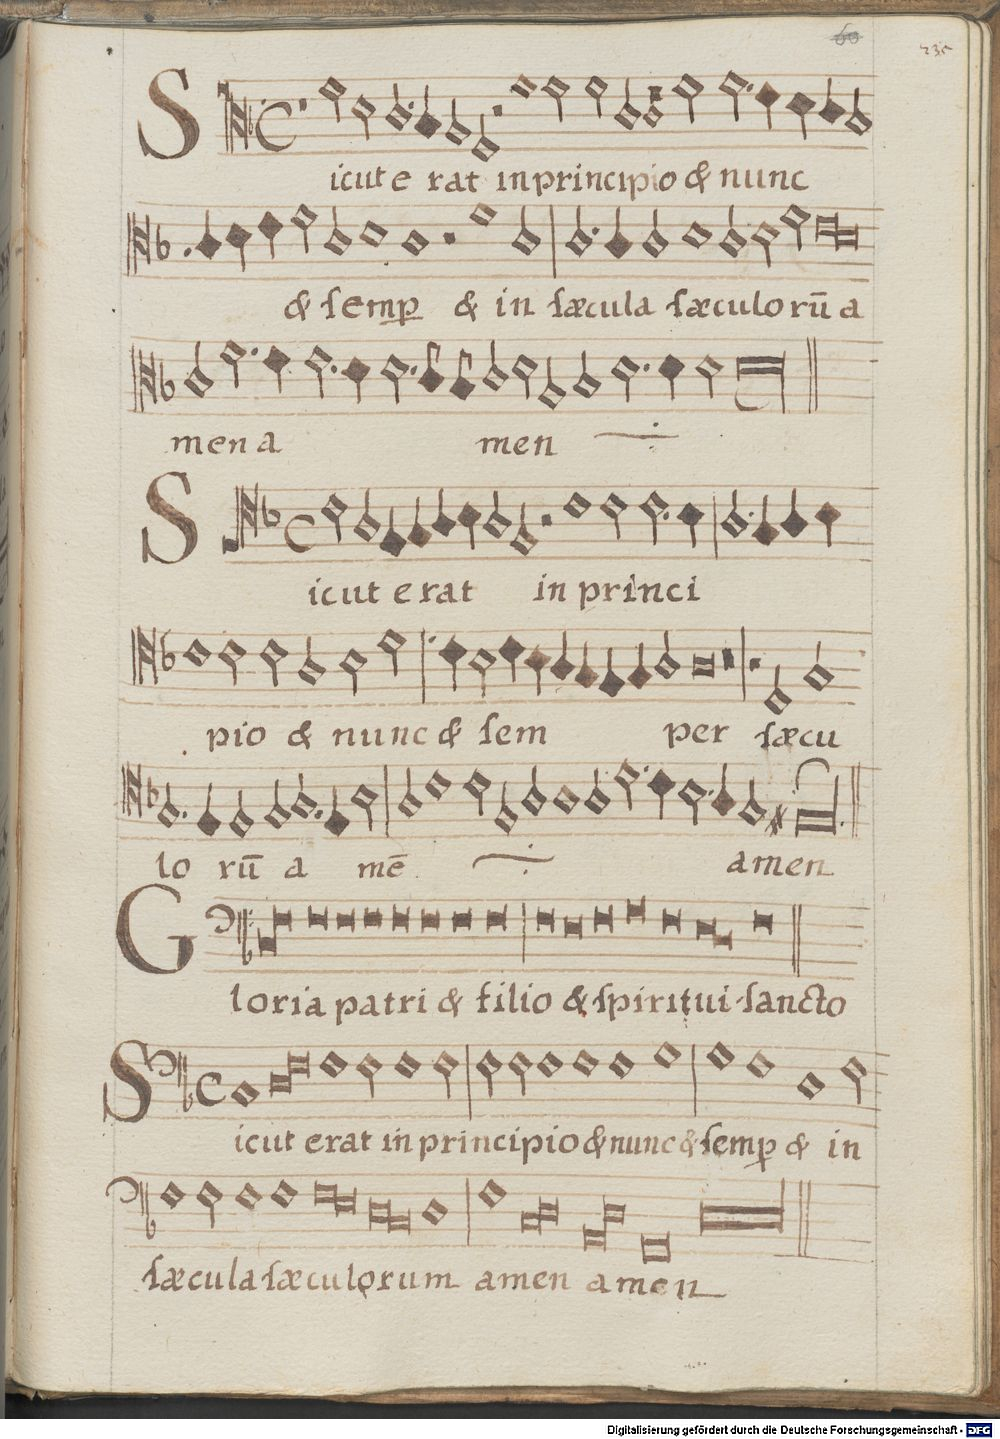 60
235
Sicut erat in principio & nunc
& semp & in sæcula sæculorū a
men a men
Sicut erat in princi
pio & nunc & sem per sæcu
lo rū a mē amen
Gloria patri & filio & spiritui sancto
Sicut erat in principio & nunc & semp & in
sæcula sæculorum amen amen
Digitalisierung gefördert durch die Deutsche Forschungsgemeinschaft - DFG